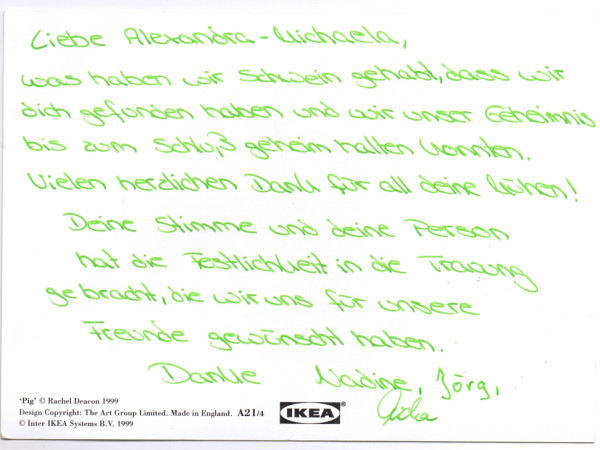 Liebe Alexandra-Michaela,
was haben wir Schwein gehabt, dass wir
dich gefunden haben und wir unser Geheimnis
bis zum Schluß geheim halten konnten.
Vielen herzlichen Dank für all deine Mühen!
Deine Stimme und deine Person
hat die Festlichkeit in die Trauung
gebracht, die wir uns für unsere
Freunde gewünscht haben.
Danke Nadine, Jörg,
'Pig' © Rachel Deacon 1999
Design Copyright: The Art Group Limited. Made in England. A21/4
© Inter IKEA Systems B.V. 1999
IKEA®